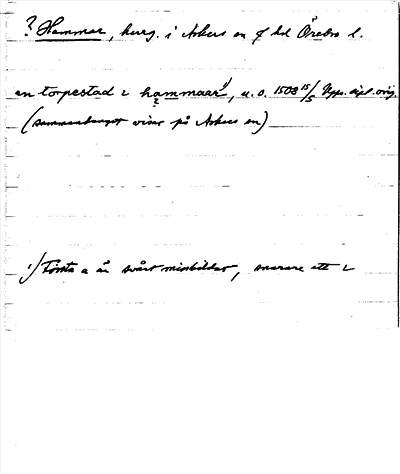 ? Hammar, herg. i Askers sn o hd Örebro l.
en torpestad i hammaar¹⁾, u.o. 1508 15/5 Upps. dipl. orig.
(sammanhanget visar på Askers sn)
¹) Första a är svårt missbildat, snarare ett i